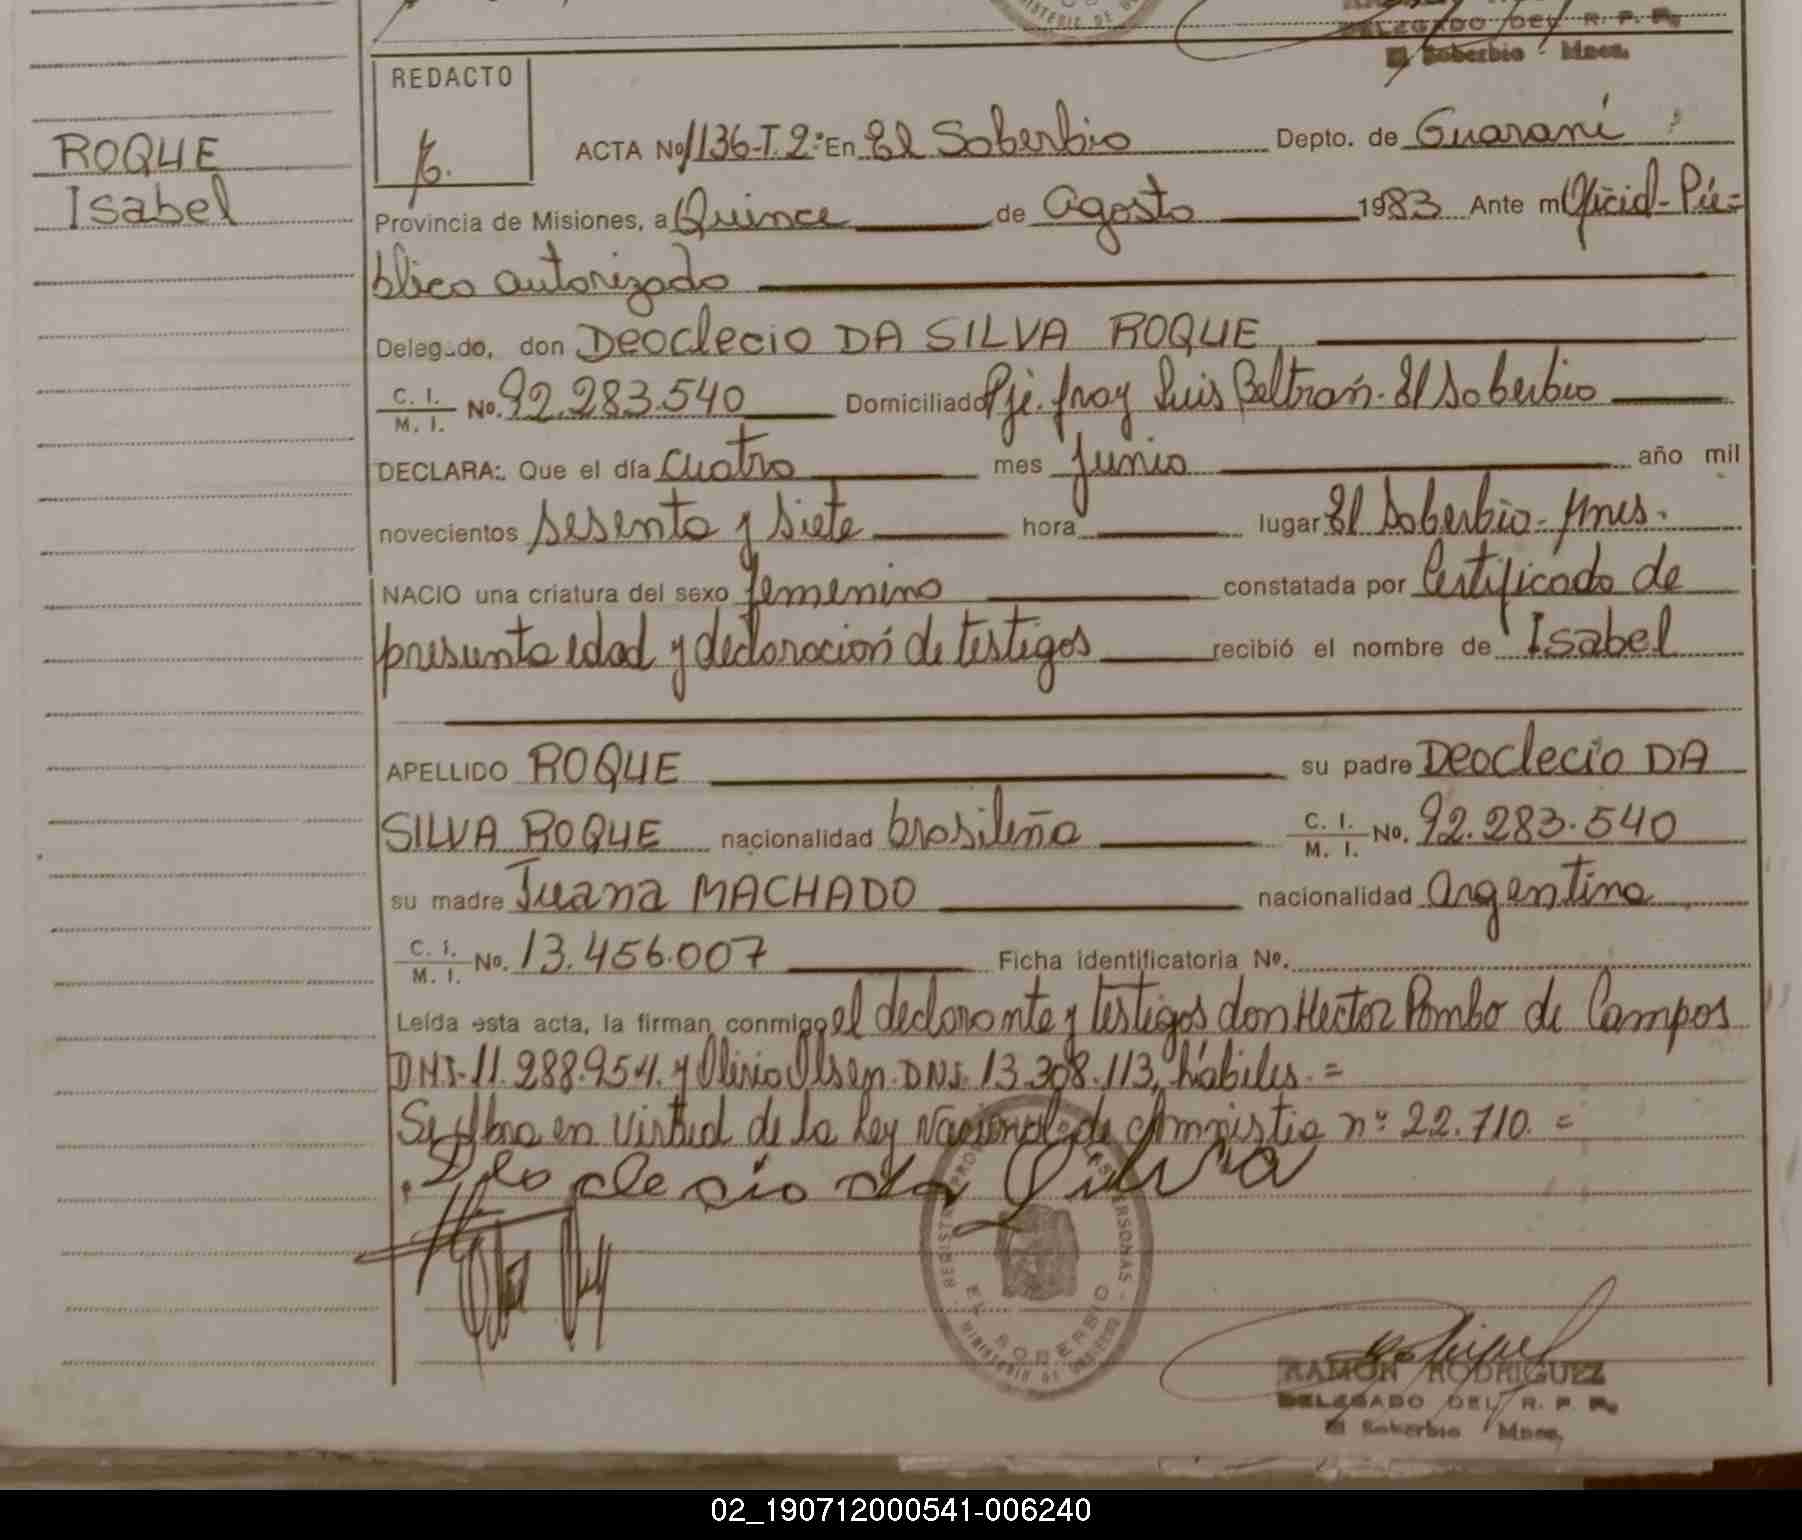 DELEGADO DEL R. P. P.
El Soberbio - Mnes.
REDACTO
ROQUE
Isabel
ACTA Nº 1136-T.2º En El Soberbio Depto. de Guaraní
Provincia de Misiones, a Quince de Agosto 1983 Ante mi Oficial-Pú=
blico autorizado
Delegado, don Deoclecio DA SILVA ROQUE
C. I. / M. I. Nº. 92.283.540 Domiciliado Pje. fray Luis Beltrán. El Soberbio
DECLARA: Que el día cuatro mes Junio año mil
novecientos sesenta y siete hora lugar El Soberbio-Mnes.
NACIO una criatura del sexo femenino constatada por Certificado de
presunta edad y declaración de testigos recibió el nombre de Isabel
APELLIDO ROQUE su padre Deoclecio DA
SILVA ROQUE nacionalidad brasileña C. I. / M. I. Nº. 92.283.540
su madre Juana MACHADO nacionalidad Argentina
C. I. / M. I. Nº. 13.456.007 Ficha identificatoria Nº.
Leída esta acta, la firman conmigo el declarante y testigos don Hector Pombo de Campos
DNI-11.288.954. y Olirio Olsen. DNI. 13.308.113, hábiles.=
Se labra en virtud de la Ley Nacional de Amnistia nº 22.710. =
Deoclecio da Silva
EL SOBERBIO
RAMON RODRIGUEZ
DELEGADO DEL R. P. P.
El Soberbio Mnes.
02_190712000541-006240